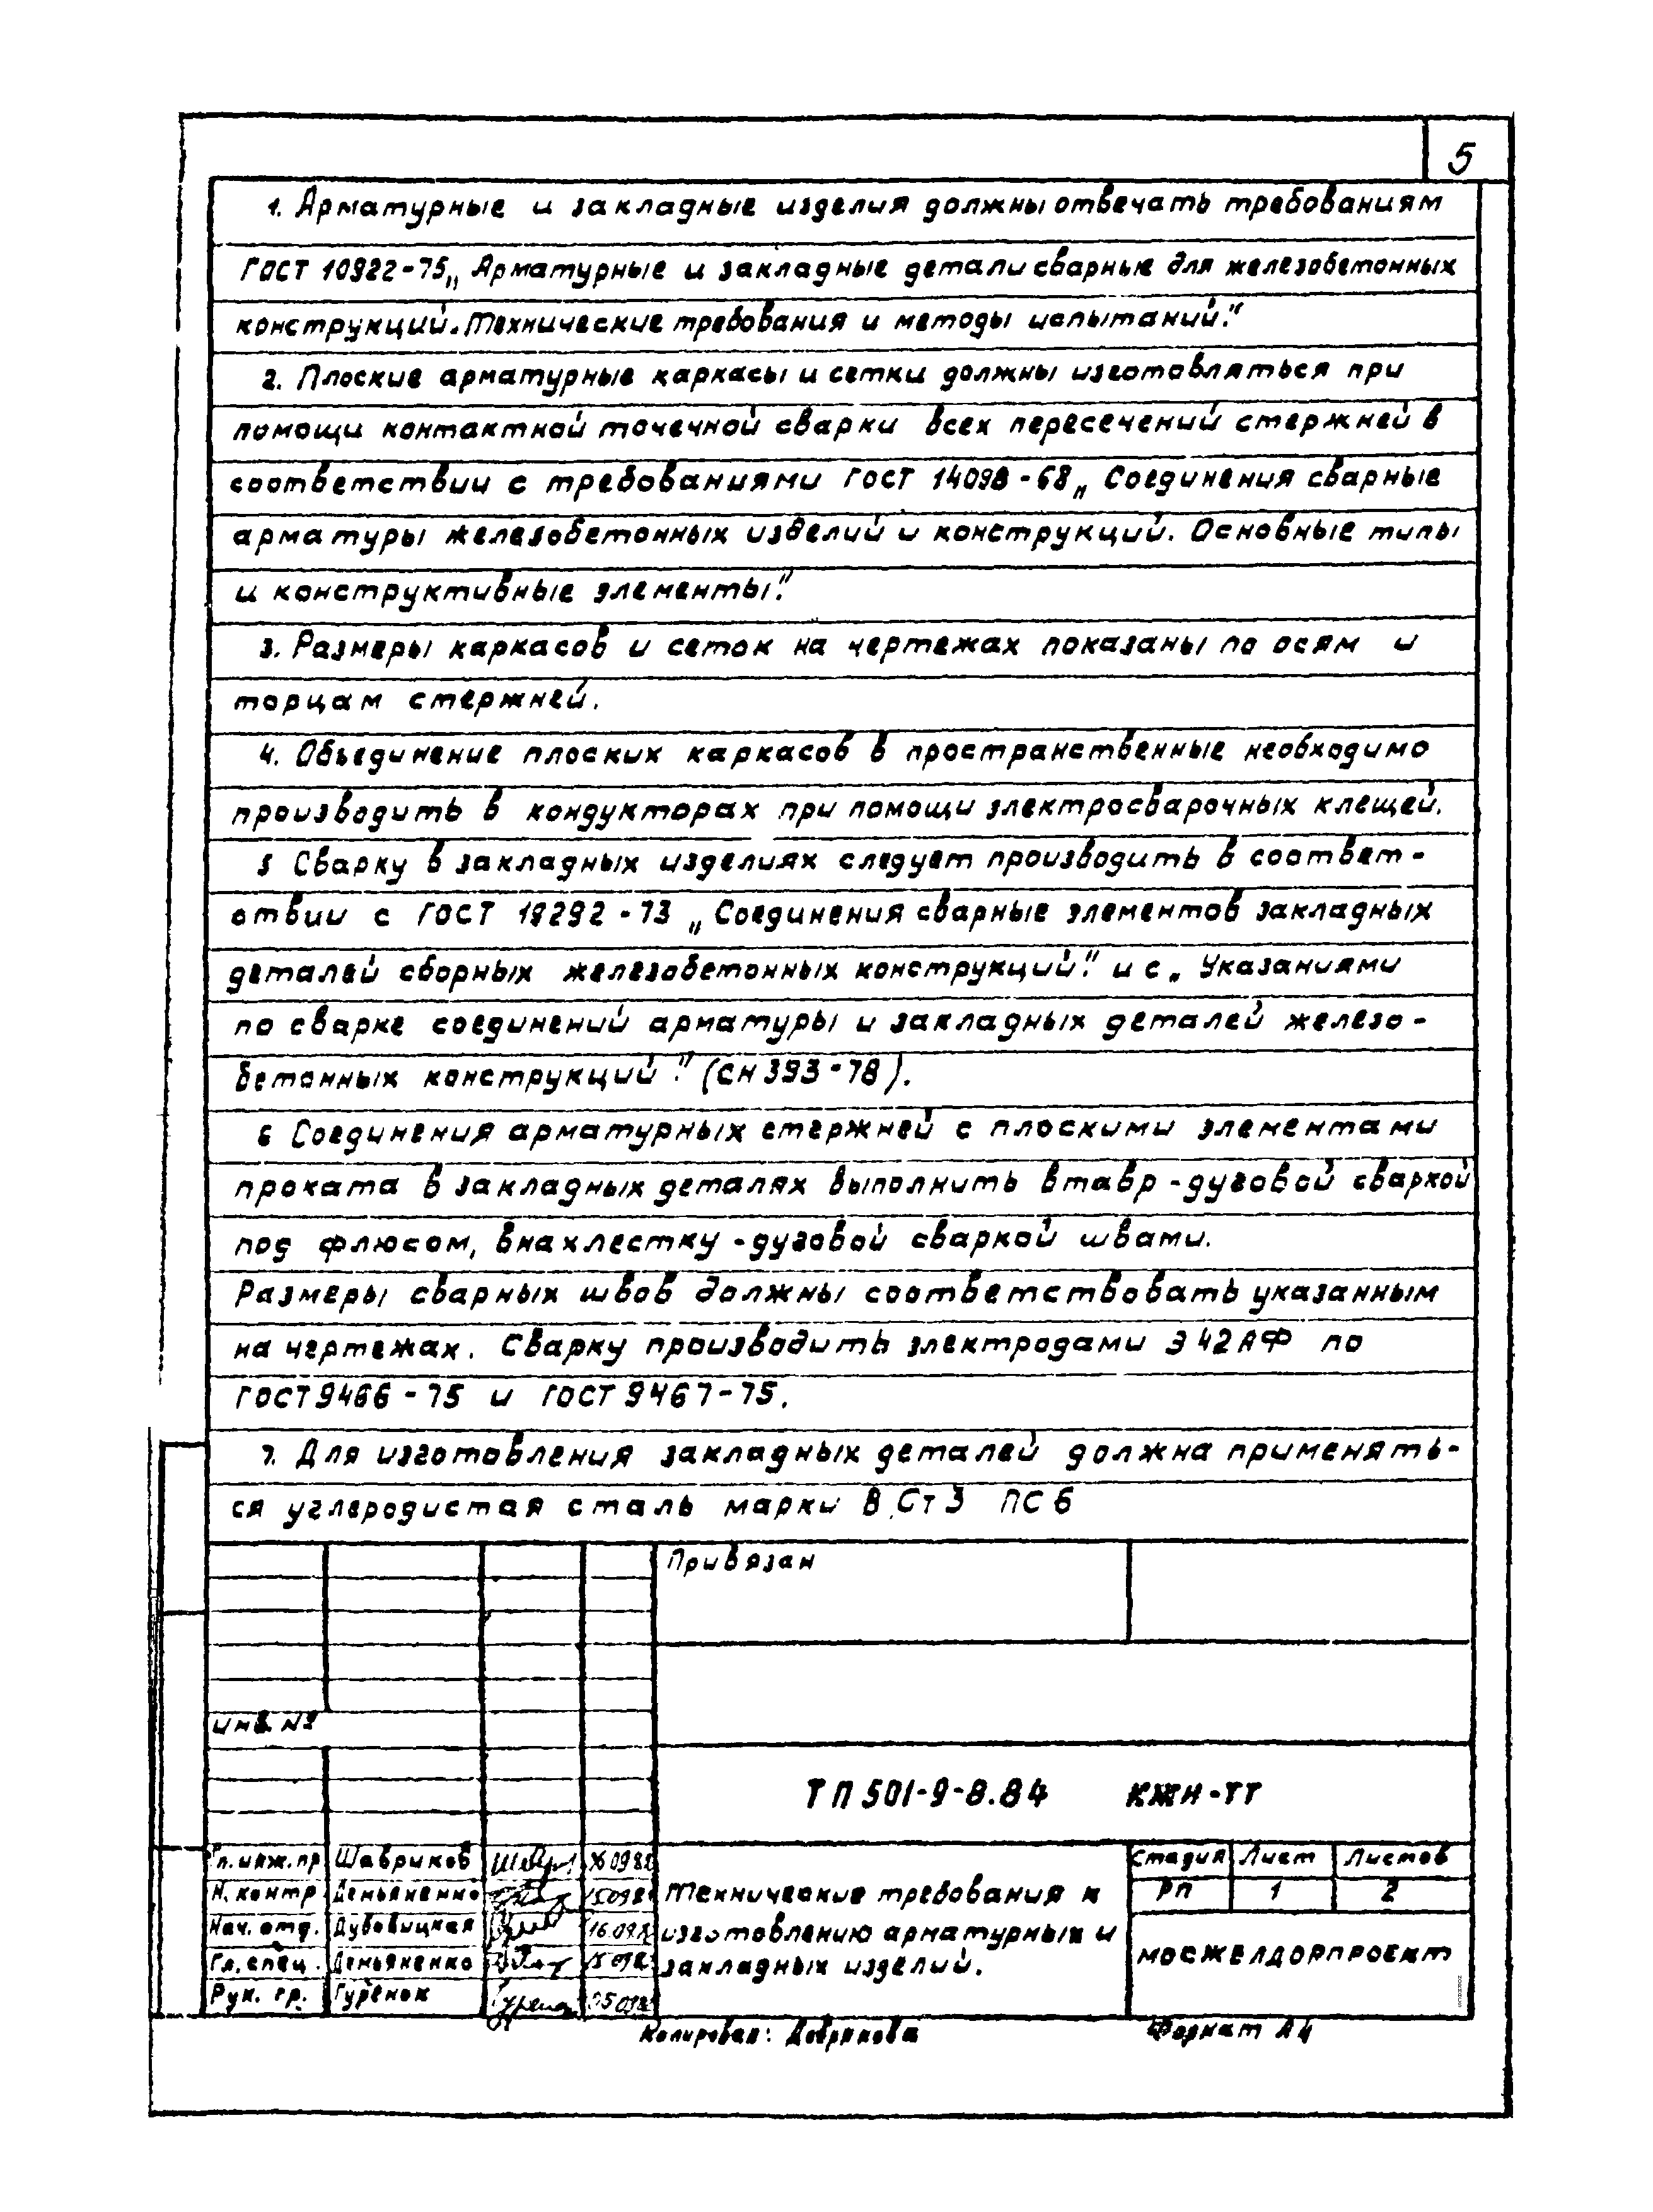 5
1. Арматурные и закладные изделия должны отвечать требованиям
ГОСТ 10922-75„ Арматурные и закладные детали сварные для железобетонных
конструкций. Технические требования и методы испытаний."
2. Плоские арматурные каркасы и сетки должны изготовляться при
помощи контактной точечной сварки всех пересечений стержней в
соответствии с требованиями ГОСТ 14098-68„ Соединения сварные
арматуры железобетонных изделий и конструкций. Основные типы
и конструктивные элементы."
3. Размеры каркасов и сеток на чертежах показаны по осям и
торцам стержней.
4. Объединение плоских каркасов в пространственные необходимо
производить в кондукторах при помощи электросварочных клещей.
5 Сварку в закладных изделиях следует производить в соответ-
ствии с ГОСТ 19292-73 „Соединения сварные элементов закладных
деталей сборных железобетонных конструкций." и с „Указаниями
по сварке соединений арматуры и закладных деталей железо-
бетонных конструкций." (СН 393-78).
6 Соединения арматурных стержней с плоскими элементами
проката в закладных деталях выполнить втавр -дуговой сваркой
под флюсом, внахлестку -дуговой сваркой швами.
Размеры сварных швов должны соответствовать указанным
на чертежах. Сварку производить электродами Э42АФ по
ГОСТ 9466-75 и ГОСТ 9467-75.
7. Для изготовления закладных деталей должна применять-
ся углеродистая сталь марки В Ст 3 ПС 6
Привязан
инв. №
ТП 501-9-8.84 КЖН-ТТ
Гл. инж. пр Шавриков
Н. контр Демьяненко
Нач. отд. Дубовицкая
Гл. спец. Демьяненко
Рук. гр. Гуренок
Технические требования к
изготовлению арматурных и
закладных изделий.
Стадия Лист Листов
РП 1 2
МОСЖЕЛДОРПРОЕКТ
Копировал: Формат А4